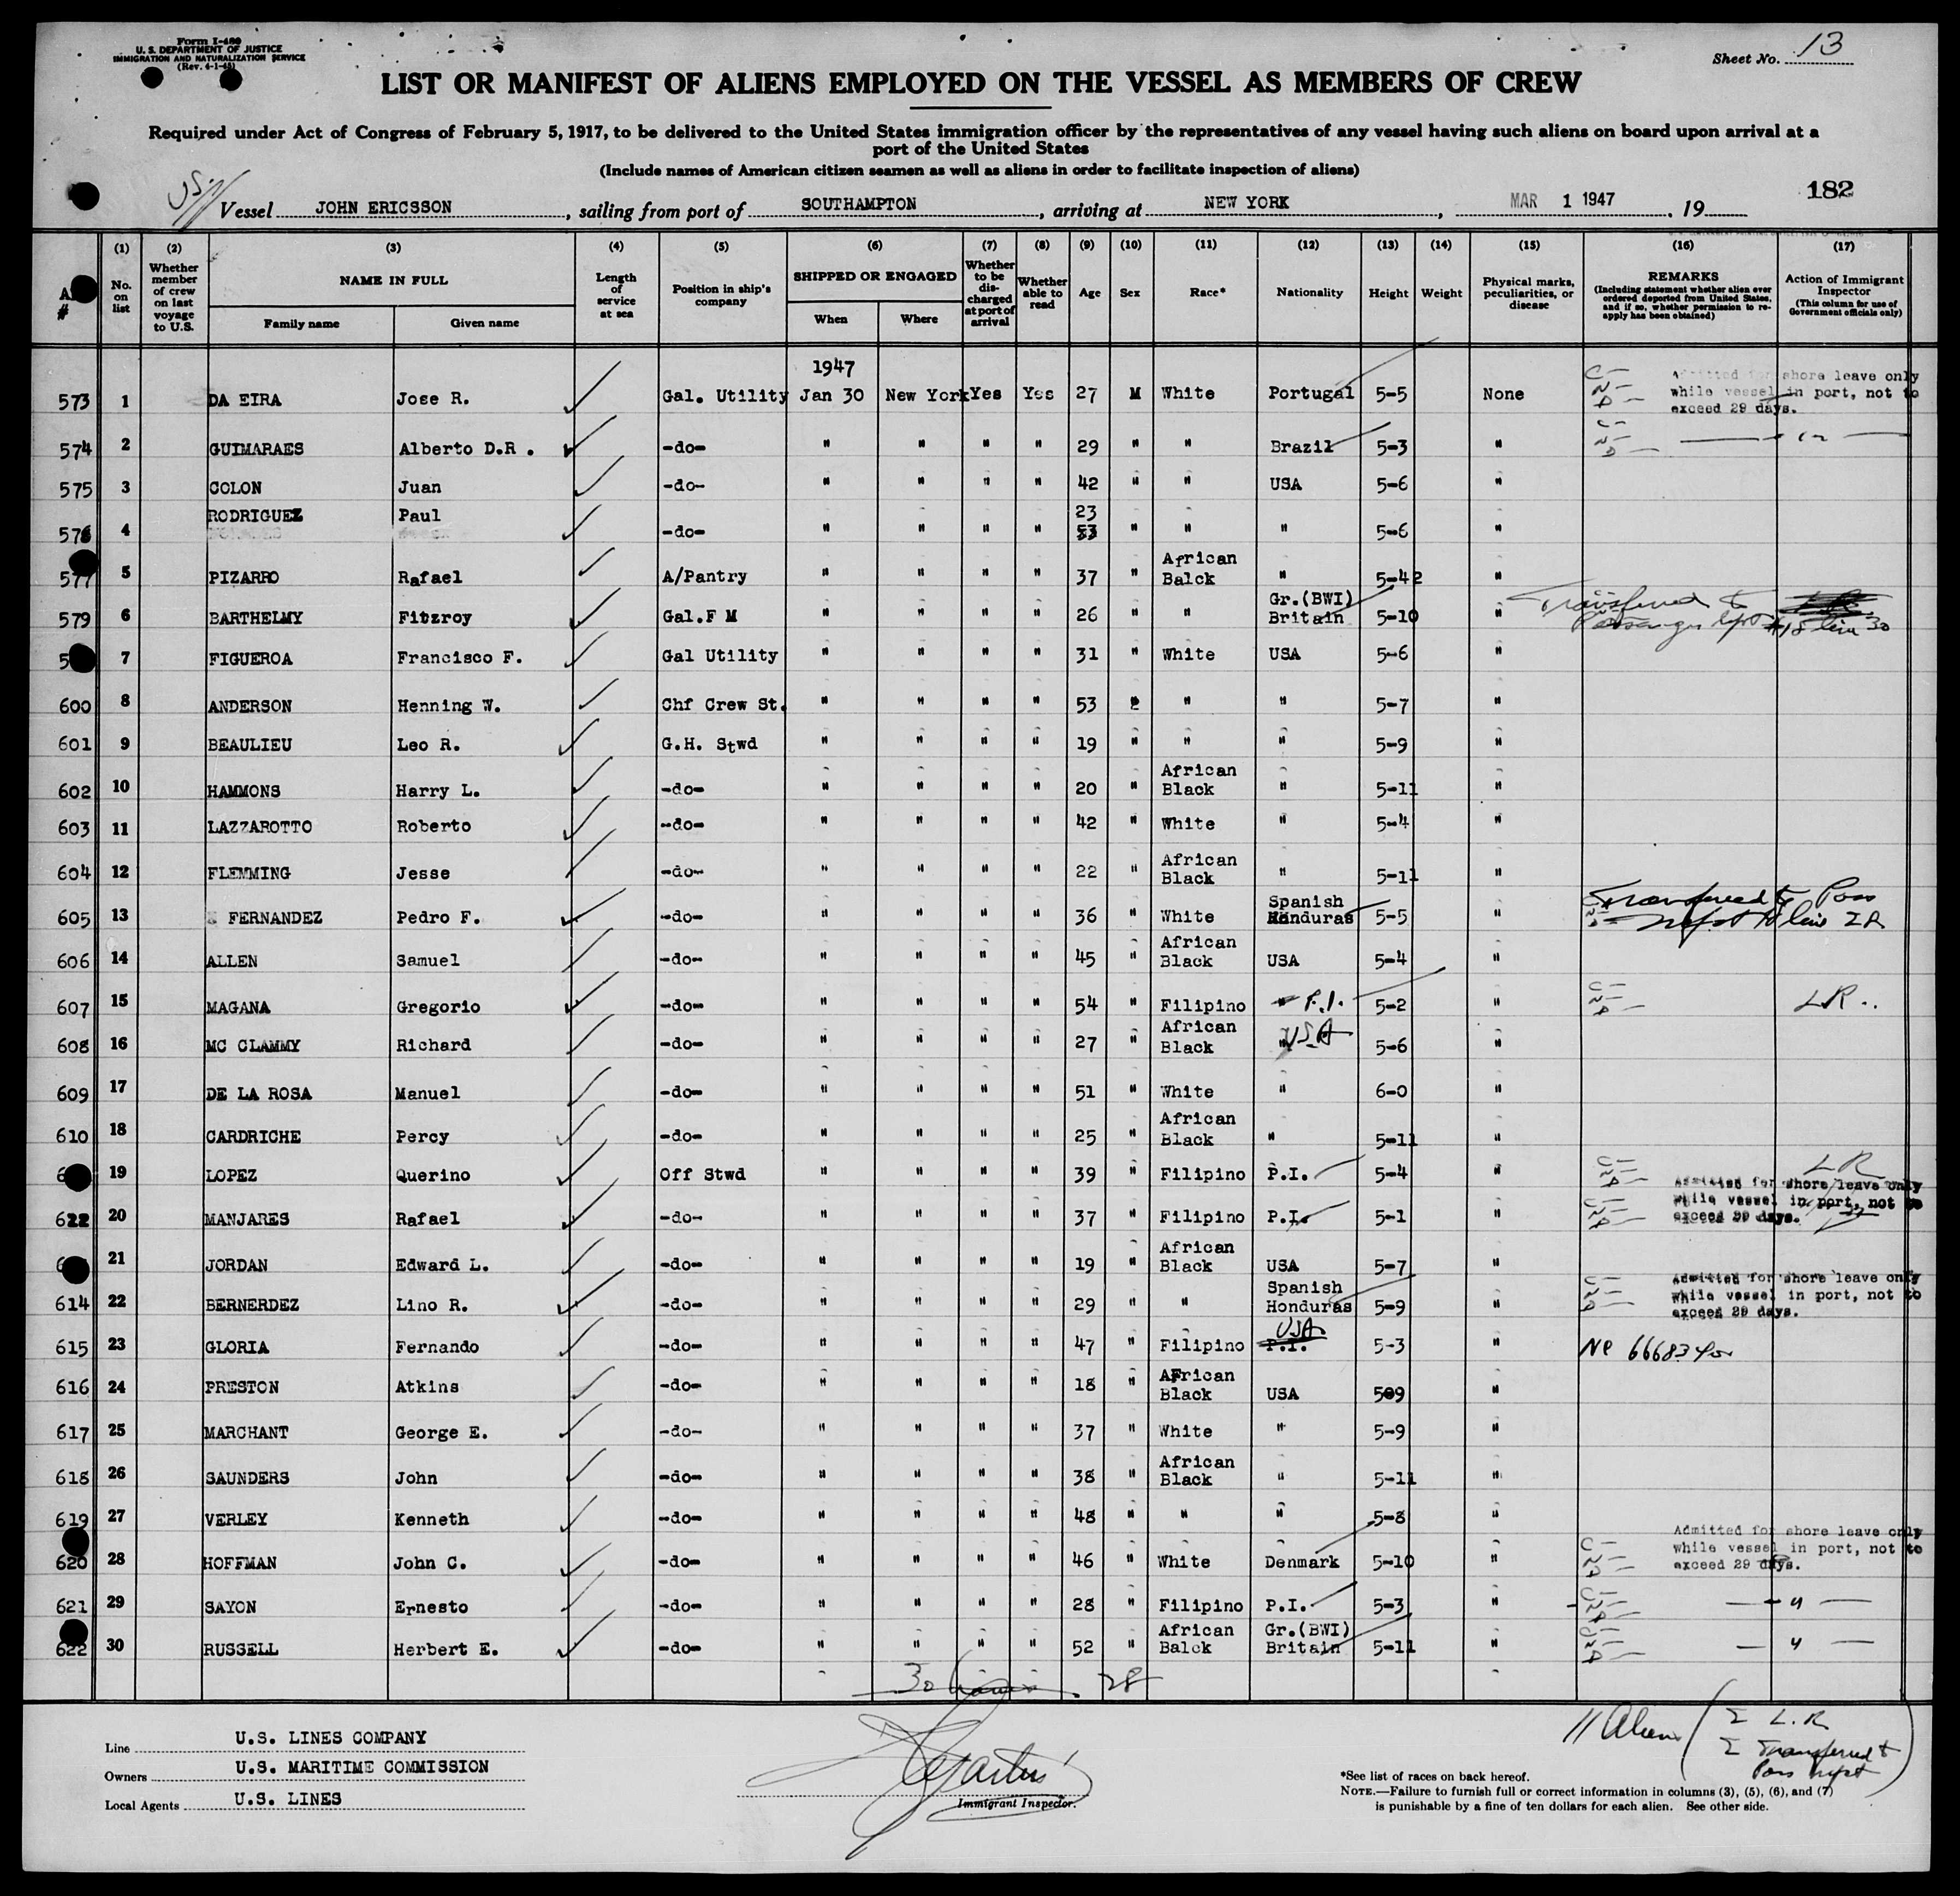 Form I-480
U. S. DEPARTMENT OF JUSTICE
IMMIGRATION AND NATURALIZATION SERVICE
(Rev. 4-1-45)
Sheet No. 13
LIST OR MANIFEST OF ALIENS EMPLOYED ON THE VESSEL AS MEMBERS OF CREW
Required under Act of Congress of February 5, 1917, to be delivered to the United States immigration officer by the representatives of any vessel having such aliens on board upon arrival at a
port of the United States
(Include names of American citizen seamen as well as aliens in order to facilitate inspection of aliens)
182
Vessel JOHN ERICSSON, sailing from port of SOUTHAMPTON, arriving at NEW YORK, MAR 1 1947, 19
(1) (2) (3) (4) (5) (6) (7) (8) (9) (10) (11) (12) (13) (14) (15) (16) (17)
# No. on list Whether member of crew on last voyage to U.S. NAME IN FULL Family name Given name Length of service at sea Position in ship's company SHIPPED OR ENGAGED When Where Whether to be discharged at port of arrival Whether able to read Age Sex Race* Nationality Height Weight Physical marks, peculiarities, or disease REMARKS (Including statement whether alien ever ordered deported from United States, and if so, whether permission to re-apply has been obtained) Action of Immigrant Inspector (This column for use of Government officials only)
1947
573 1 DA EIRA Jose R. Gal. Utility Jan 30 New York Yes Yes 27 M White Portugal 5-5 None Admitted for shore leave only while vessel in port, not to exceed 29 days.
574 2 GUIMARAES Alberto D.R . -do- " " " " 29 " " Brazil 5-3 "
575 3 COLON Juan -do- " " " " 42 " " USA 5-6 "
576 4 RODRIGUEZ Paul -do- " " " " 23 53 " " " 5-6 "
577 5 PIZARRO Rafael A/Pantry " " " " 37 " African Balck " 5-42 "
579 6 BARTHELMY Fitzroy Gal.F M " " " " 26 " " Gr.(BWI) Britain 5-10 " Transferred to Passenger #18 line 30
7 FIGUEROA Francisco F. Gal Utility " " " " 31 " White USA 5-6 "
600 8 ANDERSON Henning W. Chf Crew St. " " " " 53 " " " 5-7 "
601 9 BEAULIEU Leo R. G.H. Stwd " " " " 19 " " " 5-9 "
602 10 HAMMONS Harry L. -do- " " " " 20 " African Black " 5-11 "
603 11 LAZZAROTTO Roberto -do- " " " " 42 " White " 5-4 "
604 12 FLEMMING Jesse -do- " " " " 22 " African Black " 5-11 "
605 13 FERNANDEZ Pedro F. -do- " " " " 36 " White Spanish Honduras 5-5 " Transferred to Pass
606 14 ALLEN Samuel -do- " " " " 45 " African Black USA 5-4 "
607 15 MAGANA Gregorio -do- " " " " 54 " Filipino P.I. 5-2 " LR
608 16 MC CLAMMY Richard -do- " " " " 27 " African Black USA 5-6 "
609 17 DE LA ROSA Manuel -do- " " " " 51 " White " 6-0 "
610 18 CARDRICHE Percy -do- " " " " 25 " African Black " 5-11 "
19 LOPEZ Querino Off Stwd " " " " 39 " Filipino P.I. 5-4 " LR
20 MANJARES Rafael -do- " " " " 37 " Filipino P.I. 5-1 " Admitted for shore leave only while vessel in port, not to exceed 29 days.
21 JORDAN Edward L. -do- " " " " 19 " African Black USA 5-7 "
614 22 BERNERDEZ Lino R. -do- " " " " 29 " " Spanish Honduras 5-9 " Admitted for shore leave only while vessel in port, not to exceed 29 days.
615 23 GLORIA Fernando -do- " " " " 47 " Filipino USA P.I. 5-3 "
616 24 PRESTON Atkins -do- " " " " 18 " African Black USA 509 "
617 25 MARCHANT George E. -do- " " " " 37 " White " 5-9 "
618 26 SAUNDERS John -do- " " " " 38 " African Black " 5-11 "
619 27 VERLEY Kenneth -do- " " " " 48 " " " 5-8 "
620 28 HOFFMAN John C. -do- " " " " 46 " White Denmark 5-10 " Admitted for shore leave only while vessel in port, not to exceed 29 days.
621 29 SAYON Ernesto -do- " " " " 28 " Filipino P.I. 5-3 " "
622 30 RUSSELL Herbert E. -do- " " " " 52 " African Balck Gr.(BWI) Britain 5-11 " "
30 28
11 Aliens ( 2 L.R. 2 Transferred to Pass )
Line U.S. LINES COMPANY
Owners U.S. MARITIME COMMISSION
Local Agents U.S. LINES
Immigrant Inspector.
*See list of races on back hereof.
NOTE.—Failure to furnish full or correct information in columns (3), (5), (6), and (7)
is punishable by a fine of ten dollars for each alien. See other side.